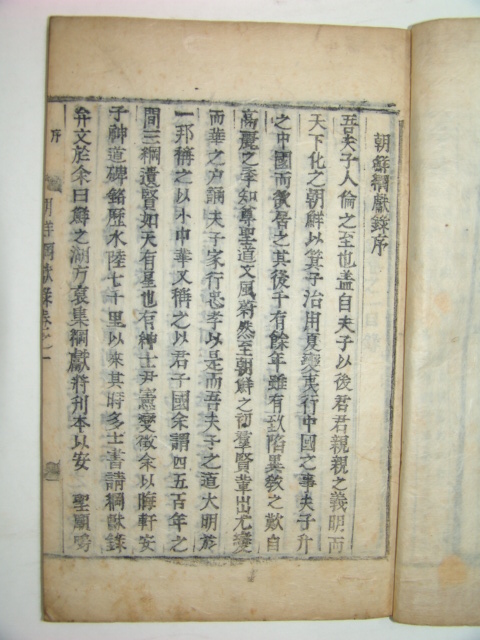 朝鮮綱獻錄序
吾夫子人倫之至也盖自夫子以後君君親親之義明而
天下化之朝鮮以箕子治用夏變夷行中國之事夫子升
之中國而欲居之其後千有餘年雖有致陷異敎之歎自
高麗之季知尊聖道文風蔚然至朝鮮之初羣賢輩出尤變
而華之戶誦夫子家行忠孝以是而吾夫子之道大明於
一邦稱之以小中華又稱之以君子國余謂四五百年之
間三綱遺賢如天有星也有紳士尹憲燮徵余以晦軒安
子神道碑銘歷水陸七千里以來其時多士書請綱獻錄
弁文於余曰鮮之湖方裒集綱獻將刊本以安 聖願鳴
朝鮮綱獻錄卷之一
序